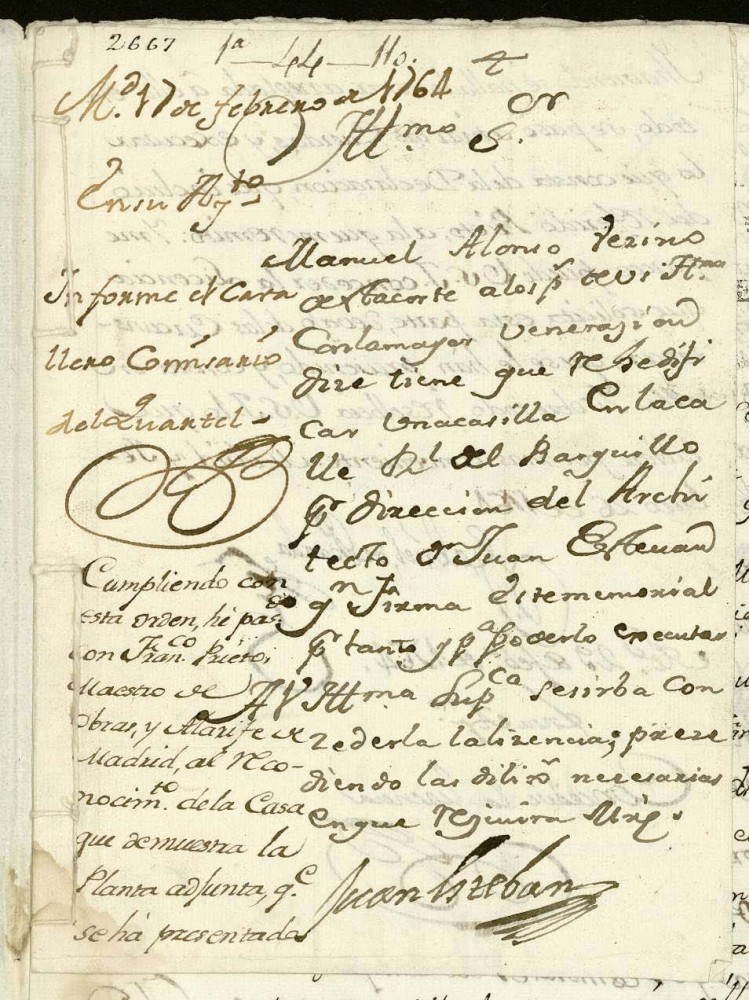 2667
1ª - 44 - 110.
M.d 17 de febrero de 1764
Yllmo S.or
En su Ay.to
Informe el Cava
llero Comisario
del Quartel
Manuel Alonso Vezino
de esta corte a los p.s de V S Yll.ma
Con la mayor Venerazion
dize tiene que rehedifi
car Una casilla En la ca
lle Rl del Barquillo
pr direccion del Archi
tecto Dn Juan Estevan
qn Firma este memorial
pr tanto y pª poderlo executar
A V Yllma Supca se sirba con
zederla la lizencia, preze
diendo las dilizs necesarias
en que rezivira Mrd.
Juan Esteban
Cumpliendo con
esta orden, hé pasdo
con Franco Prieto,
Maestro de
Obras, y Alarife de
Madrid, al reco-
nocimto. de la Casa
que demuestra la
Planta adjunta, q.e
se há presentado